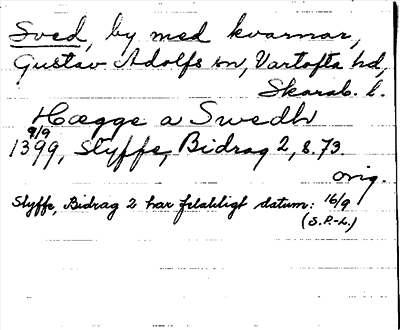 Sved, by med kvarnar,
Gustav Adolfs sn, Vartofta hd,
Skarab. l.
Hægge a Swedh
9/9
1399, Styffe, Bidrag 2, s. 73.
orig.
Styffe, Bidrag 2 har felaktigt datum: 16/9
(S.P.-L.)